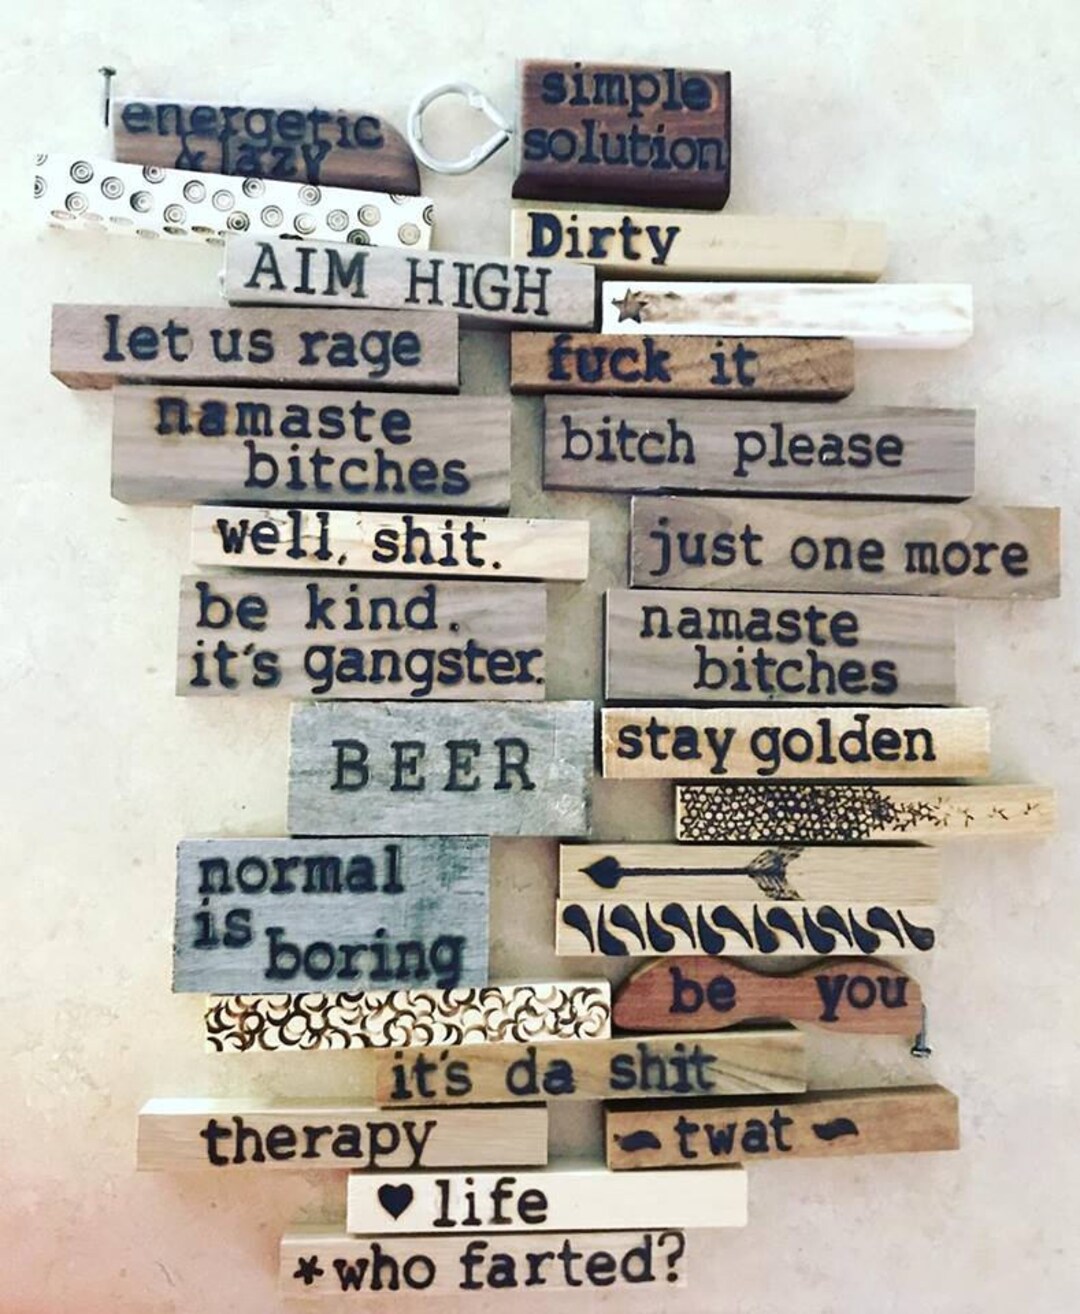 energetic
& lazy
simple
solution
Dirty
AIM HIGH
let us rage
fuck it
namaste
bitches
bitch please
well, shit.
just one more
be kind.
it's gangster.
namaste
bitches
BEER
stay golden
normal
is
boring
be you
it's da shit
therapy
~ twat ~
♥ life
*who farted?